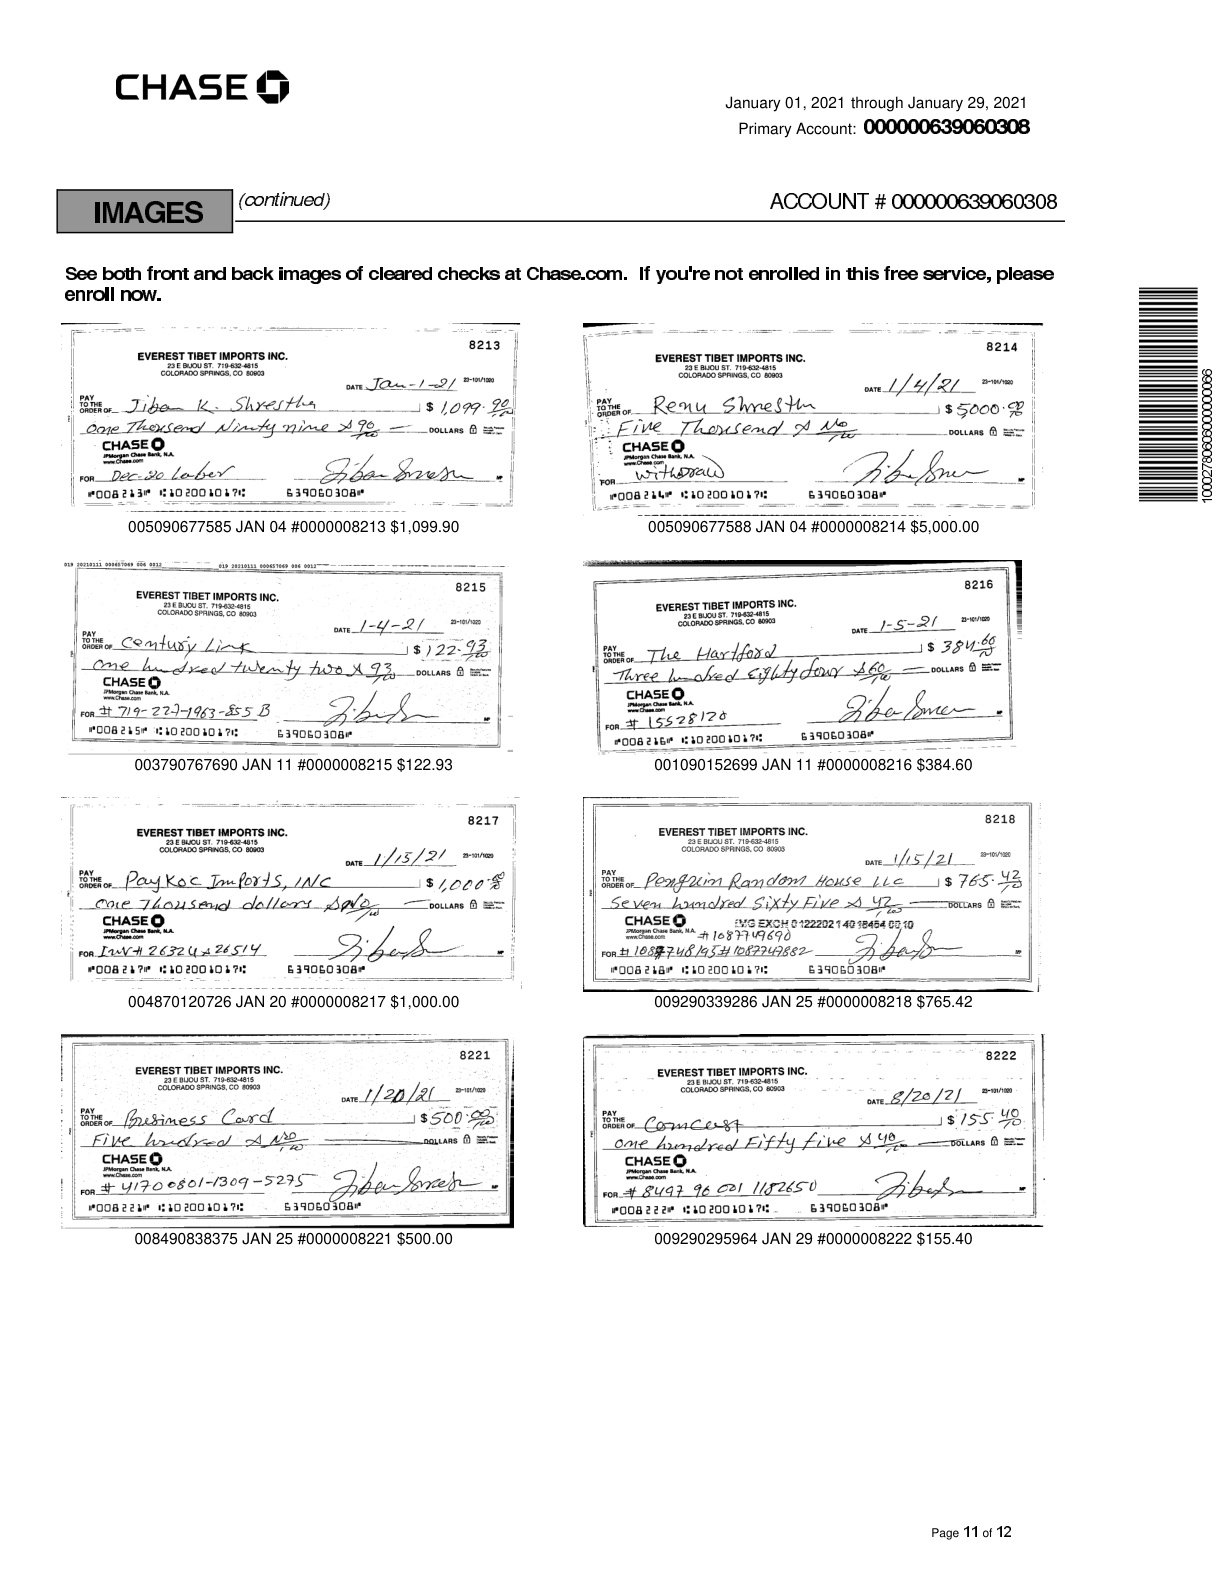 CHASE
January 01, 2021 through January 29, 2021
Primary Account: 000000639060308
IMAGES (continued) ACCOUNT # 000000639060308
See both front and back images of cleared checks at Chase.com. If you're not enrolled in this free service, please
enroll now.
10002780606000000066
8213
EVEREST TIBET IMPORTS INC.
23 E BIJOU ST. 719-632-4815
COLORADO SPRINGS, CO 80903
DATE Jan-1-21 23-101/1020
PAY
TO THE
ORDER OF Jiban K. Shrestha $ 1,099.90/100
One Thousend Ninty nine & 90/100 DOLLARS
CHASE
JPMorgan Chase Bank, N.A.
www.Chase.com
FOR Dec-20 Labor
⑈008213⑈ ⑆102001017⑆ 639060308⑈
005090677585 JAN 04 #0000008213 $1,099.90
8214
EVEREST TIBET IMPORTS INC.
23 E BIJOU ST. 719-632-4815
COLORADO SPRINGS, CO 80903
DATE 1/4/21 23-101/1020
PAY
TO THE
ORDER OF Renu Shresth $ 5000.00
Five Thousend & No/100 DOLLARS
CHASE
JPMorgan Chase Bank, N.A.
www.Chase.com
FOR withdraw
⑈008214⑈ ⑆102001017⑆ 639060308⑈
005090677588 JAN 04 #0000008214 $5,000.00
019 20210111 000657069 006 0012 019 20210111 000657069 006 0012
8215
EVEREST TIBET IMPORTS INC.
23 E BIJOU ST. 719-632-4815
COLORADO SPRINGS, CO 80903
DATE 1-4-21 23-101/1020
PAY
TO THE
ORDER OF Century Link $ 122.93/100
One hundred twenty two & 93/100 DOLLARS
CHASE
JPMorgan Chase Bank, N.A.
www.Chase.com
FOR # 719-227-1963-855 B
⑈008215⑈ ⑆102001017⑆ 639060308⑈
003790767690 JAN 11 #0000008215 $122.93
8216
EVEREST TIBET IMPORTS INC.
23 E BIJOU ST. 719-632-4815
COLORADO SPRINGS, CO 80903
DATE 1-5-21 23-101/1020
PAY
TO THE
ORDER OF The Hartford $ 384.60
Three hundred Eighty four & 60/100 DOLLARS
CHASE
JPMorgan Chase Bank, N.A.
www.Chase.com
FOR # 15528120
⑈008216⑈ ⑆102001017⑆ 639060308⑈
001090152699 JAN 11 #0000008216 $384.60
8217
EVEREST TIBET IMPORTS INC.
23 E BIJOU ST. 719-632-4815
COLORADO SPRINGS, CO 80903
DATE 1/15/21 23-101/1020
PAY
TO THE
ORDER OF PayKoc Imports, INC $ 1,000.00
One Thousend dollars & No/100 DOLLARS
CHASE
JPMorgan Chase Bank, N.A.
www.Chase.com
FOR Inv# 26324 & 26514
⑈008217⑈ ⑆102001017⑆ 639060308⑈
004870120726 JAN 20 #0000008217 $1,000.00
8218
EVEREST TIBET IMPORTS INC.
23 E BIJOU ST. 719-632-4815
COLORADO SPRINGS, CO 80903
DATE 1/15/21 23-101/1020
PAY
TO THE
ORDER OF Penguin Random House LLC $ 765.42
Seven hundred Sixty Five & 42/100 DOLLARS
CHASE
JPMorgan Chase Bank, N.A.
www.Chase.com
#1087749690
FOR #1087748195#1087749882
⑈008218⑈ ⑆102001017⑆ 639060308⑈
009290339286 JAN 25 #0000008218 $765.42
8221
EVEREST TIBET IMPORTS INC.
23 E BIJOU ST. 719-632-4815
COLORADO SPRINGS, CO 80903
DATE 1/20/21 23-101/1020
PAY
TO THE
ORDER OF Business Card $ 500.00
Five hundred & No/100 DOLLARS
CHASE
JPMorgan Chase Bank, N.A.
www.Chase.com
FOR # 41700801-1309-5275
⑈008221⑈ ⑆102001017⑆ 639060308⑈
008490838375 JAN 25 #0000008221 $500.00
8222
EVEREST TIBET IMPORTS INC.
23 E BIJOU ST. 719-632-4815
COLORADO SPRINGS, CO 80903
DATE 8/20/21 23-101/1020
PAY
TO THE
ORDER OF Comcast $ 155.40
One hundred Fifty five & 40/100 DOLLARS
CHASE
JPMorgan Chase Bank, N.A.
www.Chase.com
FOR # 8497 96 001 1182650
⑈008222⑈ ⑆102001017⑆ 639060308⑈
009290295964 JAN 29 #0000008222 $155.40
Page 11 of 12